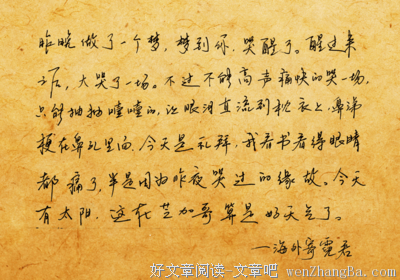 昨晚做了一个梦，梦到你，哭醒了。醒过来
之后，大哭了一场。不过不能高声痛快的哭一场，
只能抽抽噎噎的，让眼泪直流到枕衣上，鼻涕
梗在鼻孔里面，今天是礼拜，我看书看得眼睛
都痛了，半是因为昨夜哭过的缘故。今天
有太阳，这在芝加哥算是好天气了。
—海外寄霓君
好文章阅读-文章吧 wenZhangBa.com